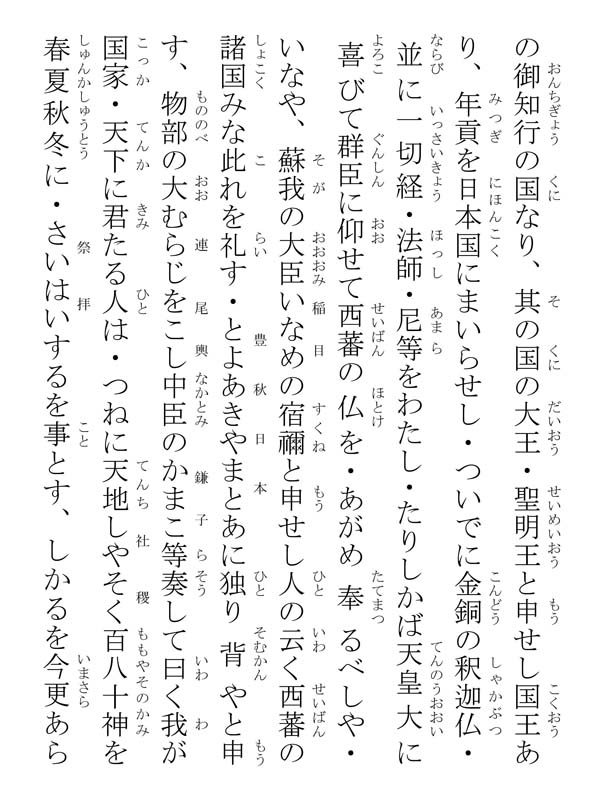 の御知行の国なり、其の国の大王・聖明王と申せし国王あ
り、年貢を日本国にまいらせし・ついでに金銅の釈迦仏・
並に一切経・法師・尼等をわたし・たりしかば天皇大に
喜びて群臣に仰せて西蕃の仏を・あがめ奉るべしや・
いなや、蘇我の大臣いなめの宿禰と申せし人の云く西蕃の
諸国みな此れを礼す・とよあきやまとあに独り背やと申
す、物部の大むらじをこし中臣のかまこ等奏して曰く我が
国家・天下に君たる人は・つねに天地しやそく百八十神を
春夏秋冬に・さいはいするを事とす、しかるを今更あら